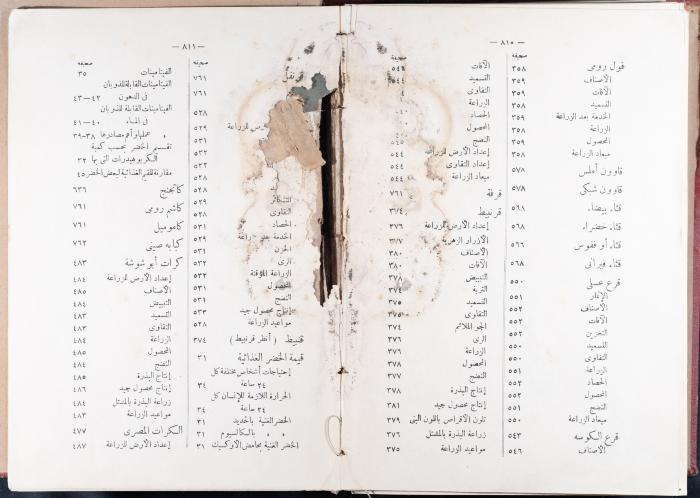 — ٨١٠ —
صحيفه
فول رومى ٣٥٨
الأصناف ٣٥٩
التسميد ٣٥٩
التقاوى ٣٥٨
الخدمة بعد الزراعة ٣٥٩
الزراعة ٣٥٨
المحصول ٣٥٩
ميعاد الزراعة ٣٥٨
قاوون أملس ٥٧٨
قاوون شبكى ٥٧٨
قثاء بيضاء ٥٦٨
قثاء خضراء ٥٦٨
قثاء أو فقوس ٥٦٦
قثاء فيرانى ٥٦٨
قرع عسلى ٥٥٠
الإثمار ٥٥١
الأصناف ٥٥٢
الآفات ٥٥٢
التخزين ٥٥٢
التسميد ٥٥٠
التقاوى ٥٥٠
الزراعة ٥٥١
الحصاد ٥٥٢
المحصول ٥٥٢
النضج ٥٥١
ميعاد الزراعة ٥٥٠
قرع الكوسه ٥٤٣
الأصناف ٥٤٦
صحيفه
الآفات ٥٤٨
التسميد ٥٤٤
التقاوى
الزراعة
الحصاد
المحصول
النضج ٥٤٥
إعداد الأرض للزراعة ٥٤٤
إعداد التقاوى ٥٤٤
ميعاد الزراعة ٥٤٤
قرفة ٧٦١
قرنبيط ٣٧٤
إعداد الأرض للزراعة ٣٧٦
الأزرار الزهرية ٣٧٧
الأصناف ٣٨٠
الآفات ٣٨٠
التبييض ٣٧٨
التربة ٣٧٤
التسميد ٣٧٥
التقاوى ٣٧٥
الجو الملائم ٣٧٤
الرى ٣٧٦
الزراعة ٣٧٦
المحصول ٣٧٨
النضج ٣٧٧
إنتاج البذرة ٣٧٨
إنتاج محصول جيد ٣٨١
تلون الأقراص باللون البنى ٣٧٩
زراعة البذرة بالمشتل ٣٧٦
مواعيد الزراعة ٣٧٥
— ٨١١ —
قرنفل ٧٦١
٧٦١
٥٢٨
للزراعة ٥٢٩
٥٣٢
٥٣١
٥٣٢
٥٢٨
التكاثر ٥٢٨
التقاوى ٥٢٨
الحصاد ٥٣١
الخدمة بعد الزراعة ٥٢٩
الخزن ٥٣١
الرى ٥٣٢
الزراعة المؤقتة ٥٣٢
المحصول ٥٣١
النضج ٥٣١
إنتاج محصول جيد ٥٣٣
مواعيد الزراعة ٥٢٨
قنبيط ( أنظر قرنبيط ) ٣٧٤
قيمة الخضر الغذائية ٣١
إحتياجات أشخاص مختلفة كل
٢٤ ساعة ٣٤
الحرارة اللازمة للإنسان كل
٢٤ ساعة ٣٤
الخضر الغنية بالحديد ٣١
» » بالكالسيوم ٣١
الخضر الغنية بحامض الأوكسيك ٣١
صحيفه
الفيتامينات ٣٥
الفيتامينات القابلة للذوبان
فى الدهون ٤٢–٤٣
الفيتامينات القابلة للذوبان
فى الماء ٤٠–٤١
» عملها وأهم مصادرها ٣٨–٣٩
تقسيم الخضر بحسب كمية
الكربوهيدرات التى بها ٣٢
مقارنة للقيم الغذائية لبعض الخضر ٤٥
كانجنج ٦٣٦
كاشم رومى ٧٦١
كاموميل ٧٦١
كبابه صينى ٧٦٢
كرات أبو شوشة ٤٨٣
إعداد الأرض للزراعة ٤٨٤
الأصناف ٤٨٥
التبييض ٤٨٤
التسميد ٤٨٣
التقاوى ٤٨٣
الزراعة ٤٨٤
المحصول ٤٨٥
النضج ٤٨٤
إنتاج البذرة ٤٨٥
إنتاج محصول جيد ٤٨٦
زراعة البذرة بالمشتل ٤٨٤
مواعيد الزراعة ٤٨٣
الكرات المصرى ٤٧٧
إعداد الأرض للزراعة ٤٨٧